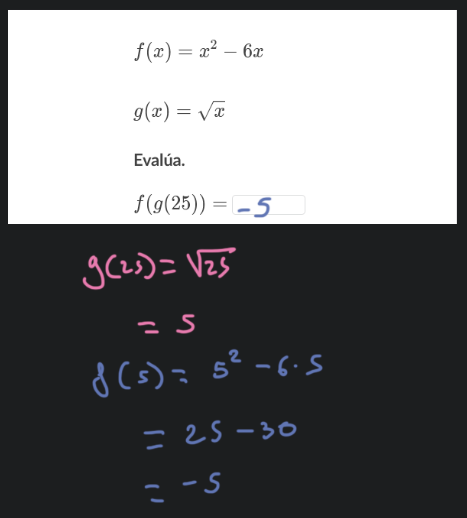 f(x) = x² − 6x
g(x) = √x
Evalúa.
f(g(25)) = -5
g(25) = √25
= 5
f(5) = 5² - 6·5
= 25 - 30
= -5